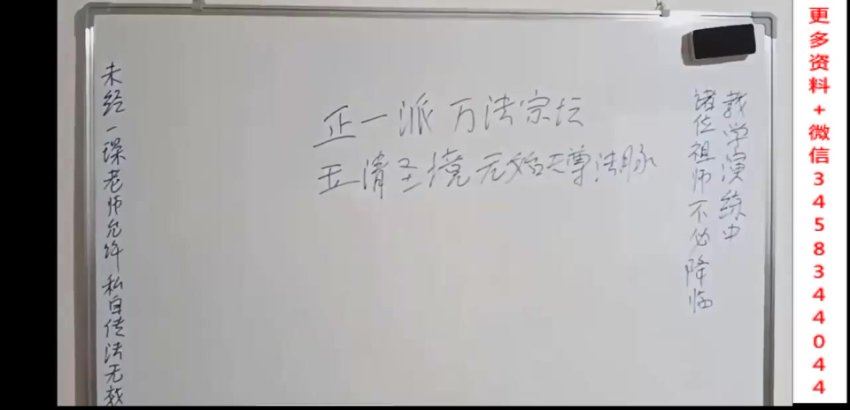 正一派 万法宗坛
玉清圣境 元始天尊法脉
教学演练中
诸位祖师不必降临
未经一课老师允许 私自传法无效
更多资料+微信3458344044